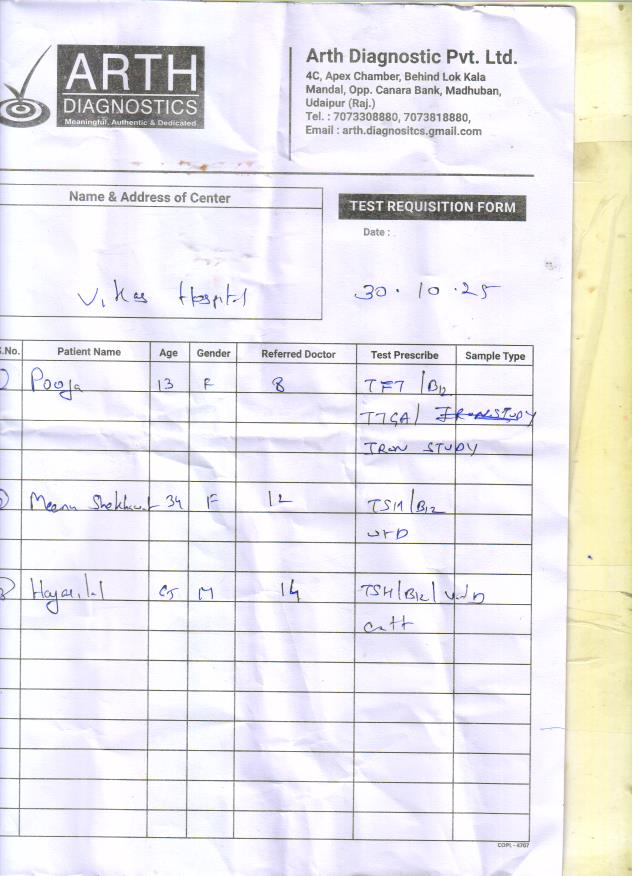 ARTH
DIAGNOSTICS
Meaningful, Authentic & Dedicated
Arth Diagnostic Pvt. Ltd.
4C, Apex Chamber, Behind Lok Kala
Mandal, Opp. Canara Bank, Madhuban,
Udaipur (Raj.)
Tel. : 7073308880, 7073818880,
Email : arth.diagnositcs.gmail.com
Name & Address of Center
TEST REQUISITION FORM
Date :
Vikas Hospital
30 . 10 . 25
S.No. Patient Name Age Gender Referred Doctor Test Prescribe Sample Type
Pooja 13 F 8 TFT / B12
TTGA / IRON STUDY
IRON STUDY
Meenu 34 F 12 TSH / B12
vit D
M 14 TSH / B12 / Vit D
COPL - 4707